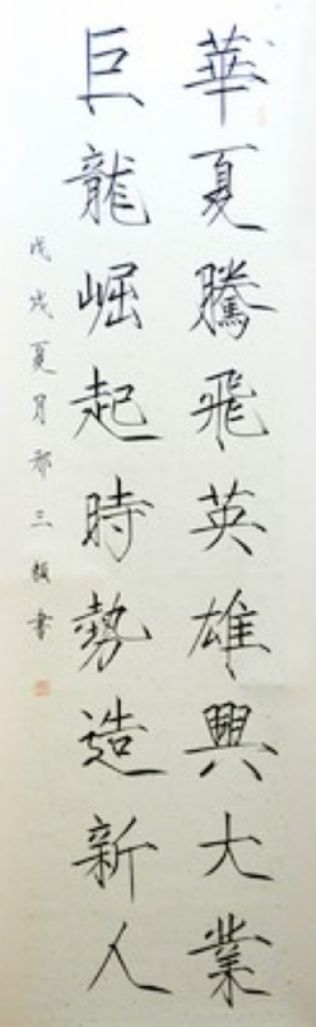 華夏騰飛英雄興大業
巨龍崛起時勢造新人
戊戌夏月 三 書